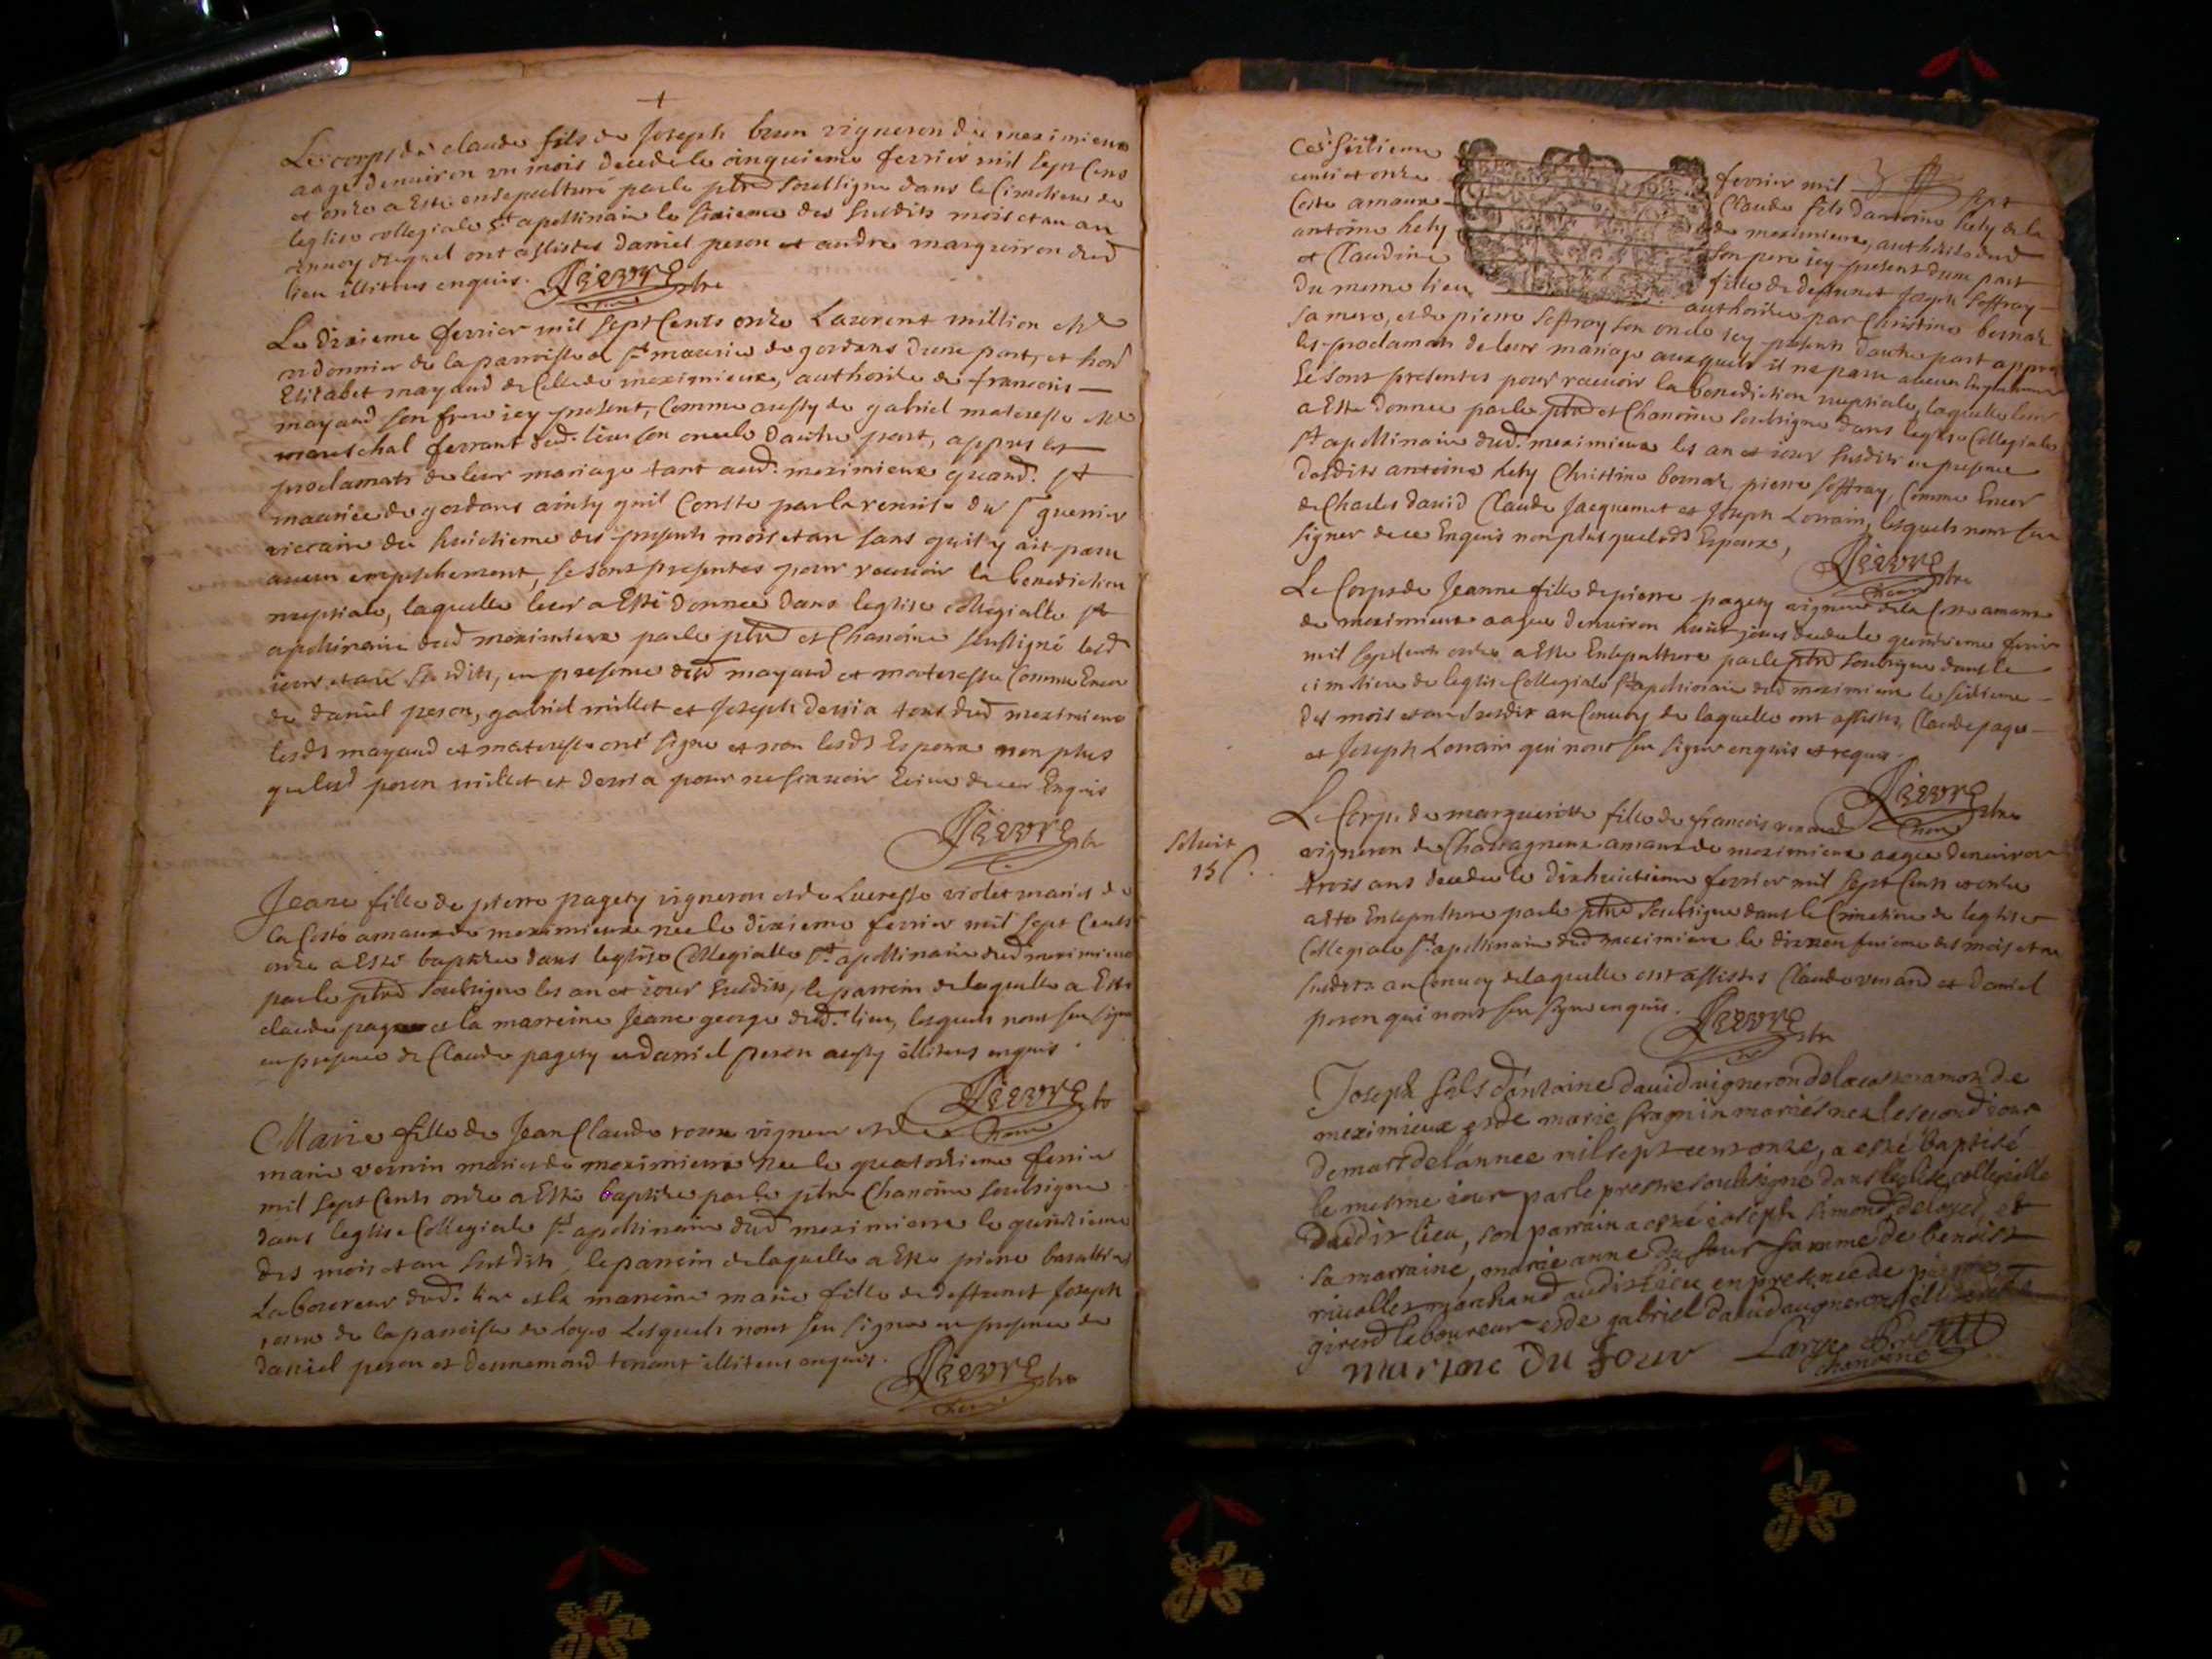 Le corps de claude fils de Joseph brun vigneron de meximieux
aagé denuiron un mois decede le cinquieme feurier mil sept Cens
et onze a Esté ensepulturé par le ptre soussigne dans le Cimetiere de
leglise collegiale St apollinaire le sixieme des susdits mois et an au
conuoy duquel ont assistes daniel peron et andre marguiron dud
lieu illiterés enquis. Lieure ptre
Le dixieme feurier mil sept Cents onze Laurent million Me
cordonnier de la parroisse de St maurice de gordans dune part, et hon
Elizabet mayaud de Celle de meximieux, authorisée de francois
mayaud son frere icy present, Comme aussy de gabriel materesse Me
mareschal ferrant dud. lieu son oncle dautre part, appres les
proclamats de leur mariage tant aud. meximieux quaud. St
maurice de gordans ainsy quil Conste par la remise du Sr guerrier
vicaire du huictieme des presents mois et an sans quil y ait paru
aucun empeschement, se sont presentes pour receuoir la benediction
nuptiale, laquelle leur a Esté donnee dans leglise collegialle St
apollinaire dud meximieux par le ptre et Chanoine soussigné lesd
iour et an susdits, en presence dud mayaud et materesse Comme Encor
de daniel peron, gabriel millet et Joseph dervia tous dud meximieux
lesds mayaud et materesse ont signe et non lesds Espoux non plus
que lesd peron millet et dervia pour ne scauoir Ecrire de ce Enquis
Lieure ptr
Jeane fille de pierre pagety vigneron et de Lucresse violet maries de
la Coste amaux de meximieux nee le dixieme feurier mil sept Cents
onze a Esté baptizee dans leglise Collegialle St apollinaire dud meximieux
par le ptre soubsigne les an et iour susdits, le parrein de laquelle a Esté
claude pagety et la marreine Jeane george dud. lieu, lesquels nont seu signer
en presence de Claude pagety et daniel peron aussy illiterés enquis
Lieure ptr
chanoine
Marie fille de Jean Claude roux vigneron et de
marie vernin maries de meximieux nee le quatorzieme feurier
mil sept Cents onze a Esté baptizee par le ptre Chanoine soubsigne
dans leglise Collegiale St apollinaire dud meximieux le quinzieme
des mois et an susdits, le parrein de laquelle a Esté pierre
Laboureur dud. lieu et la marreine marie fille de deffunct Joseph
roux de la parroisse de Loyes Lesquels nont seu signer en presence de
daniel peron et tenant illiterés enquis. Lieure ptre
Ce seizieme feurier mil sept
cents et onze Claude fils dantoine hety de la
Coste amaux de meximieux, authorisé dud
antoine hety son pere icy present dune part
et Claudine fille de deffunct Joseph Soffray
du meme lieu authorisee par Christine bernar
sa mere, et de pierre Soffray son oncle icy present dautre part appres
les proclamats de leur mariage auxquels il na paru aucun Empechement
se sont presentes pour receuoir la benediction nuptiale, laquelle leur
a Esté donnee par le ptre et Chanoine soubsigne dans leglise Collegiale
St apollinaire dud. meximieux les an et iour susdits en presence
desdits antoine hety Christine bernar, pierre Soffray, Comme Encor
de Charles dauid Claude Jacquemet et Joseph Lorrain, lesquels nont seu
signer de ce Enquis non plus que lesds Espoux,
Lieure ptre
chanoine
Le Corps de Jeanne fille de pierre pagety vigneron de la Coste amaux
de meximieux aagee denuiron huit jours decedee le quinzieme feurier
mil sept Cents onze a Esté Ensepulturee par le ptre soubsigne dans le
cimetiere de leglise Collegiale St apollinaire dud meximieux le seizieme
des mois et an susdit au Conuoy de laquelle ont assistes, Claude page
et Joseph Lorrain qui nont seu signer enquis et requis.
Lieure ptre
chanoine
Le Corps de marguerite fille de francois venard
Soluit
15 s.
vigneron de Chauagneux amaux de meximieux aagee denuiron
trois ans decedee le dixhuictieme feurier mil sept Cents et onze
a esté Ensepulturee par le ptre soubsigne dans le Cimetiere de leglise
Collegiale St apollinaire dud meximieux le dixneufuieme des mois et an
susdits au Conuoy de laquelle ont assistes Claude venard et Daniel
peron qui nont seu signer enquis. Lieure ptre
Joseph fils dantoine dauid uigneron de la coste amon de
meximieux et de marie fragnin mariés nez le second iour
de mars de lannee mil sept cent onze, a esté baptisé
le mesme iour par le prestre soubsigné dans leglise collegialle
dudit lieu, son parrain a esté ioseph simond de loyes, et
sa marraine, marie anne du four famme de benoist
riuollet marchand audit lieu en presence de pierre
girerd laboureur et de gabriel dauid uigneron
marine du four
chanoine